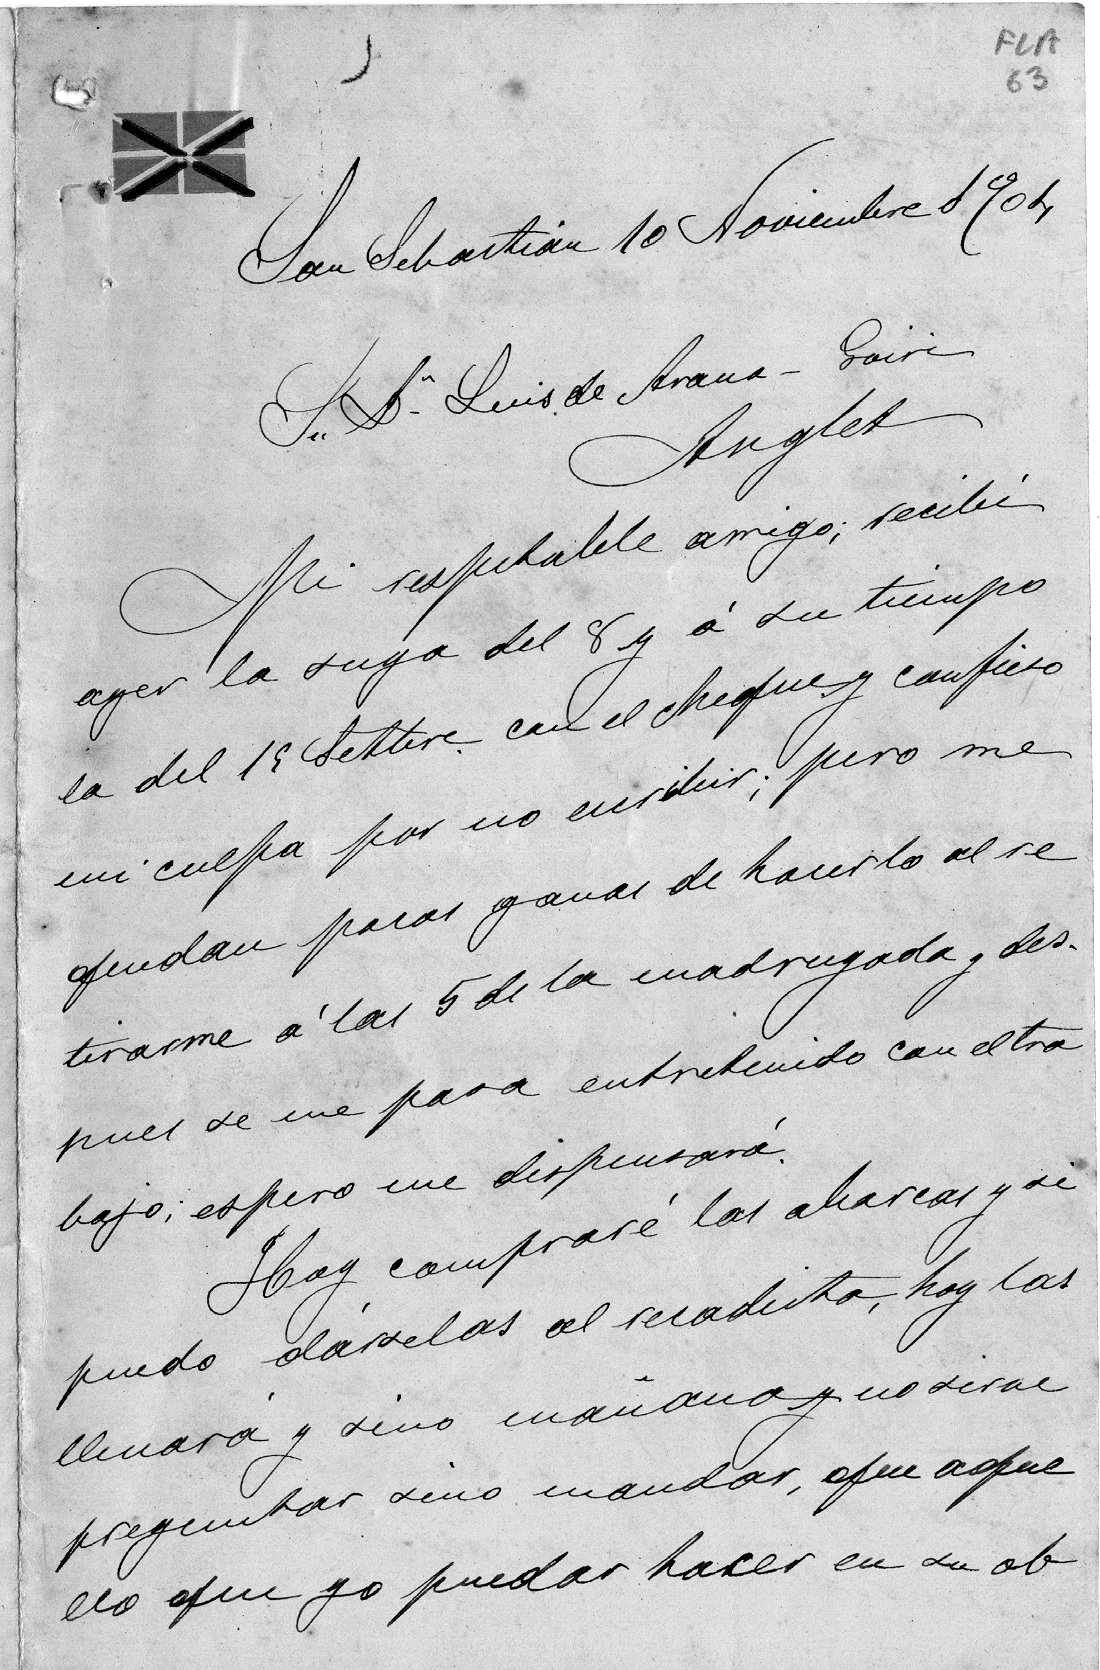 FLA
63
San Sebastián 10 Noviembre 1904
Sr. Dn. Luis de Arana-Goiri
Anglet
Mi respetable amigo; recibí
ayer la suya del 8 y á su tiempo
la del 19 Settbre. con el cheque y confieso
mi culpa por no escribir; pero me
quedan pocas ganas de hacerlo al re
tirarme á las 5 de la madrugada y des-
pues se me pasa entretenido con el tra
bajo; espero me dispensará.
Hoy compraré las abarcas y si
puedo dárselas al recadista, hoy las
llevará y sino mañana y no sirve
preguntar sino mandar, que aque
llo que yo puedar hacer en su ob